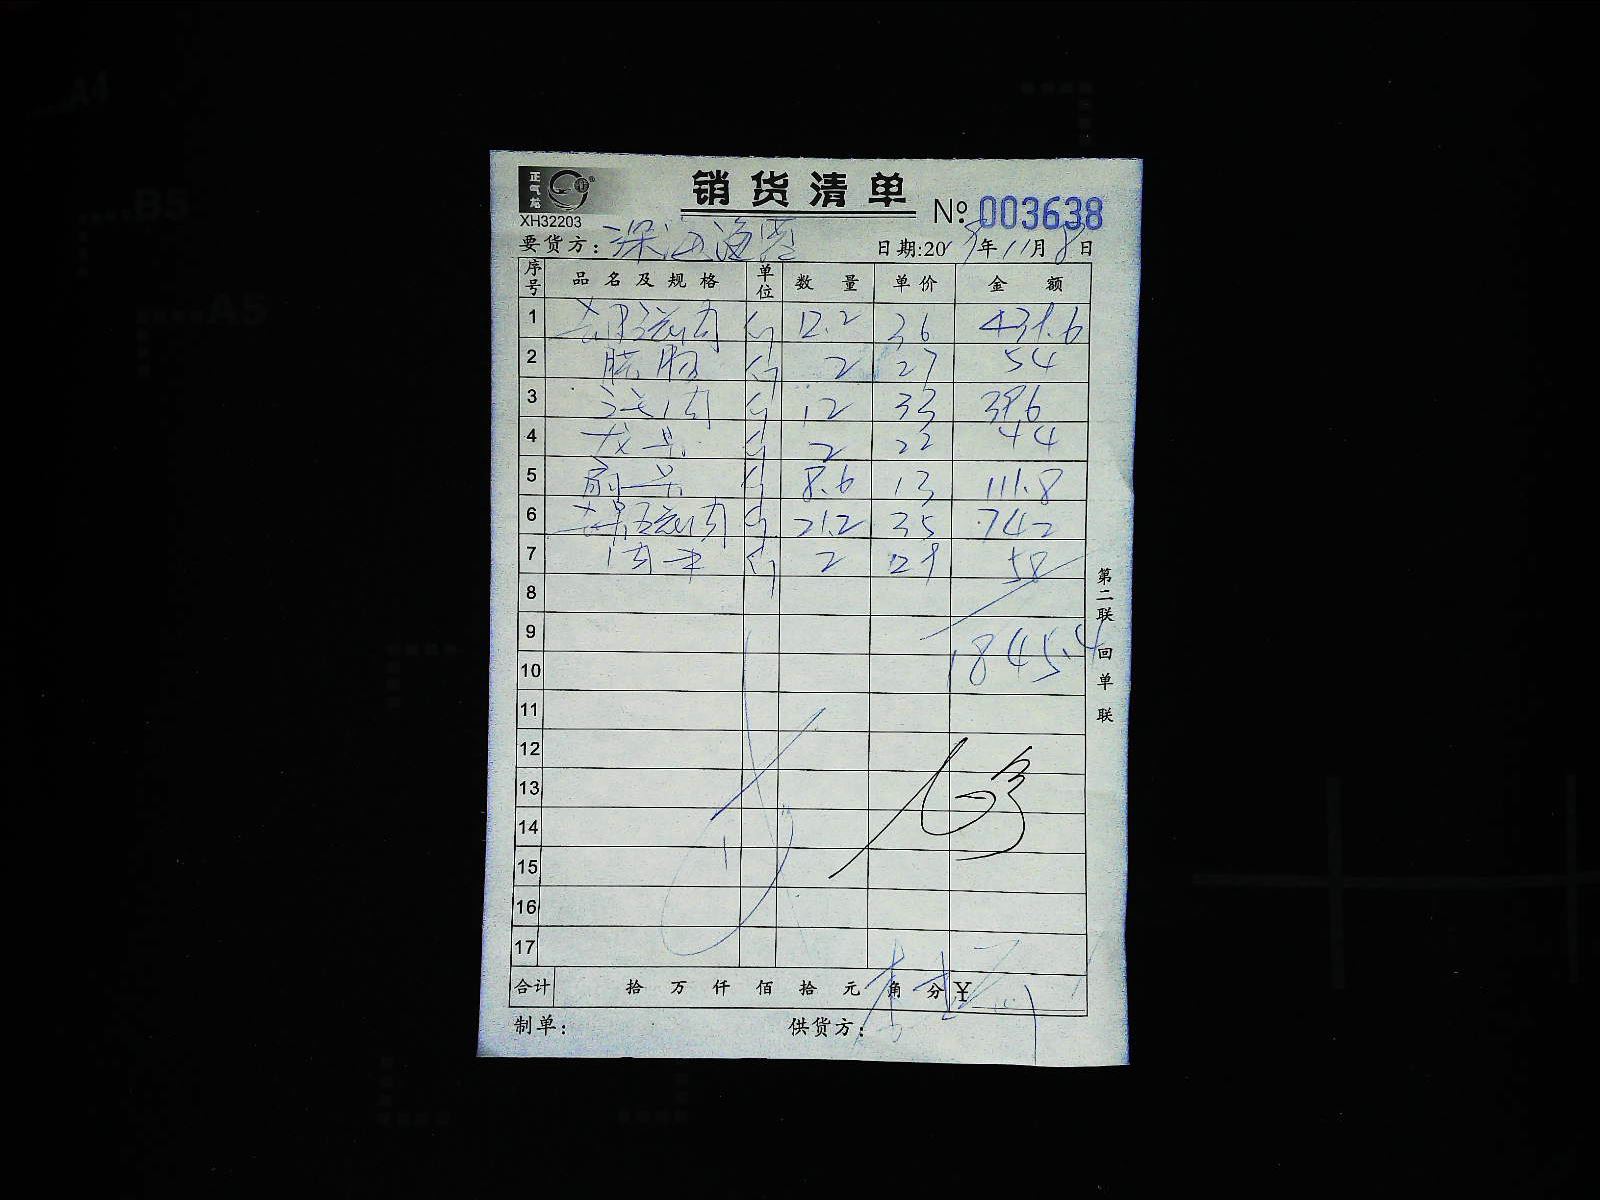 正气龙
销货清单
XH32203
№ 003638
要货方：
日期:20 年 11 月 8 日
序号 品名及规格 单位 数量 单价 金额
1 斤 12.2 36 439.6
2 斤 2 27 54
3 斤 12 33 396
4 龙骨 斤 2 22 44
5 扇骨 斤 8.6 13 111.8
6 斤 21.2 35 742
7 斤 2 29 58
8
9 1845.4
10
11
12
13
14
15
16
17
合计 拾 万 仟 佰 拾 元 角 分 ¥
制单： 供货方：
第二联 回单联
A4
B5
A5